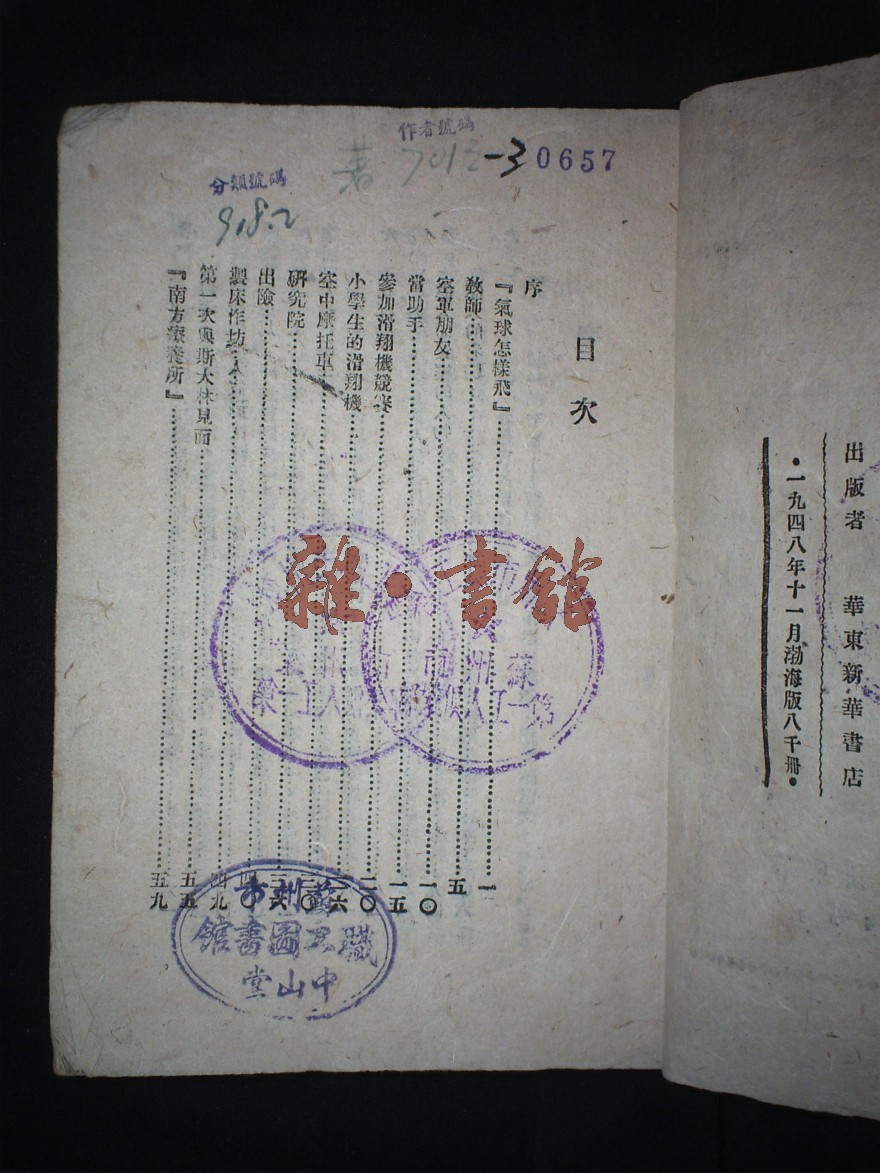 出版者 華東新華書店
·一九四八年十一月渤海版八千冊·
作者號碼
著 7012-3 0657
分類號碼
918.2
目次
序
『氣球怎樣飛』……一
教師……五
空軍朋友……一〇
當助手……一五
參加滑翔機競賽……二〇
小學生的滑翔機……二六
空中摩托車……三〇
研究院……三六
出險……四〇
製床作坊……四九
第一次與斯大林見面……五五
『南方療養所』……五九
雜·書館
蘇州市
第一工人
蘇州市
職工圖書館
中山堂